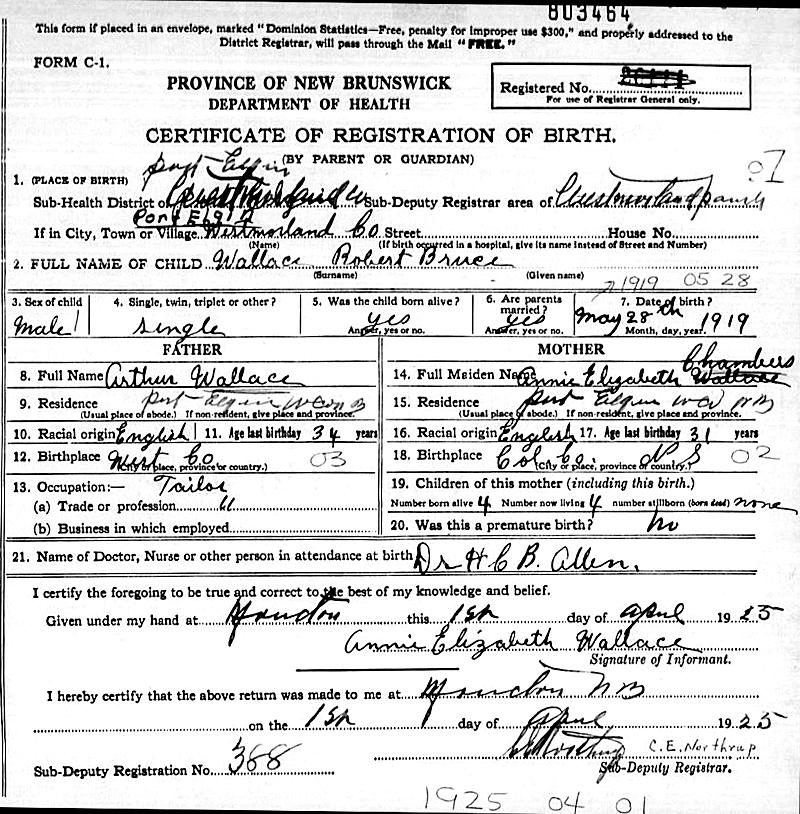 803464
This form if placed in an envelope, marked "Dominion Statistics—Free, penalty for improper use $300," and properly addressed to the
District Registrar, will pass through the Mail "FREE."
FORM C-1.
PROVINCE OF NEW BRUNSWICK
DEPARTMENT OF HEALTH
Registered No.
For use of Registrar General only.
CERTIFICATE OF REGISTRATION OF BIRTH.
(BY PARENT OR GUARDIAN)
07
Port Elgin
1. (PLACE OF BIRTH)
Sub-Health District of Sub-Deputy Registrar area of Westmorland parish
Port Elgin
If in City, Town or Village Westmorland Co Street House No.
(Name) (If birth occurred in a hospital, give its name instead of Street and Number)
2. FULL NAME OF CHILD Wallace Robert Bruce
(Surname) (Given name)
1919 05 28
3. Sex of child 4. Single, twin, triplet or other? 5. Was the child born alive? 6. Are parents married? 7. Date of birth?
Male single yes yes May 28th 1919
Answer, yes or no. Answer, yes or no. Month, day, year.
FATHER
8. Full Name Arthur Wallace
9. Residence Port Elgin W Co N B
(Usual place of abode.) If non-resident, give place and province.
10. Racial origin English 11. Age last birthday 34 years
12. Birthplace West Co 03
(City or place, province or country.)
13. Occupation:— Tailor
(a) Trade or profession "
(b) Business in which employed
MOTHER
Chambers
14. Full Maiden Name Annie Elizabeth Wallace
15. Residence Port Elgin W Co N B
(Usual place of abode.) If non-resident, give place and province.
16. Racial origin English 17. Age last birthday 31 years
18. Birthplace Col. Co. N S 02
(City or place, province or country.)
19. Children of this mother (including this birth.)
Number born alive 4 Number now living 4 number stillborn (born dead) none
20. Was this a premature birth? no
21. Name of Doctor, Nurse or other person in attendance at birth Dr H C B. Allen.
I certify the foregoing to be true and correct to the best of my knowledge and belief.
Given under my hand at Moncton this 1st day of April 1925
Annie Elizabeth Wallace
Signature of Informant.
I hereby certify that the above return was made to me at Moncton N B
on the 1st day of April 1925
C.E. Northrup
Sub-Deputy Registration No. 368 Sub-Deputy Registrar.
1925 04 01